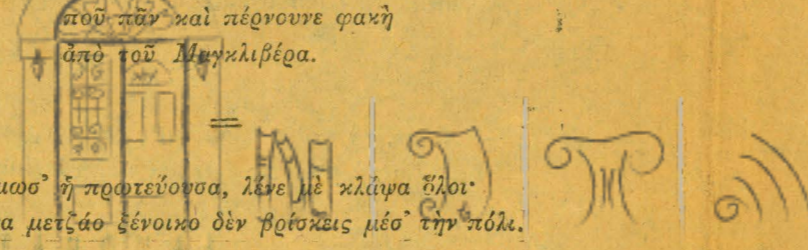 ποῦ πᾶν καὶ πέρνουνε φακῆ
ἀπὸ τοῦ Μαγκλιβέρα.
μωσ' ἡ πρωτεύουσα, λένε μὲ κλάψα ὅλοι·
α μετζάο ξένοικο δὲν βρίσκεις μέσ' τὴν πόλι.